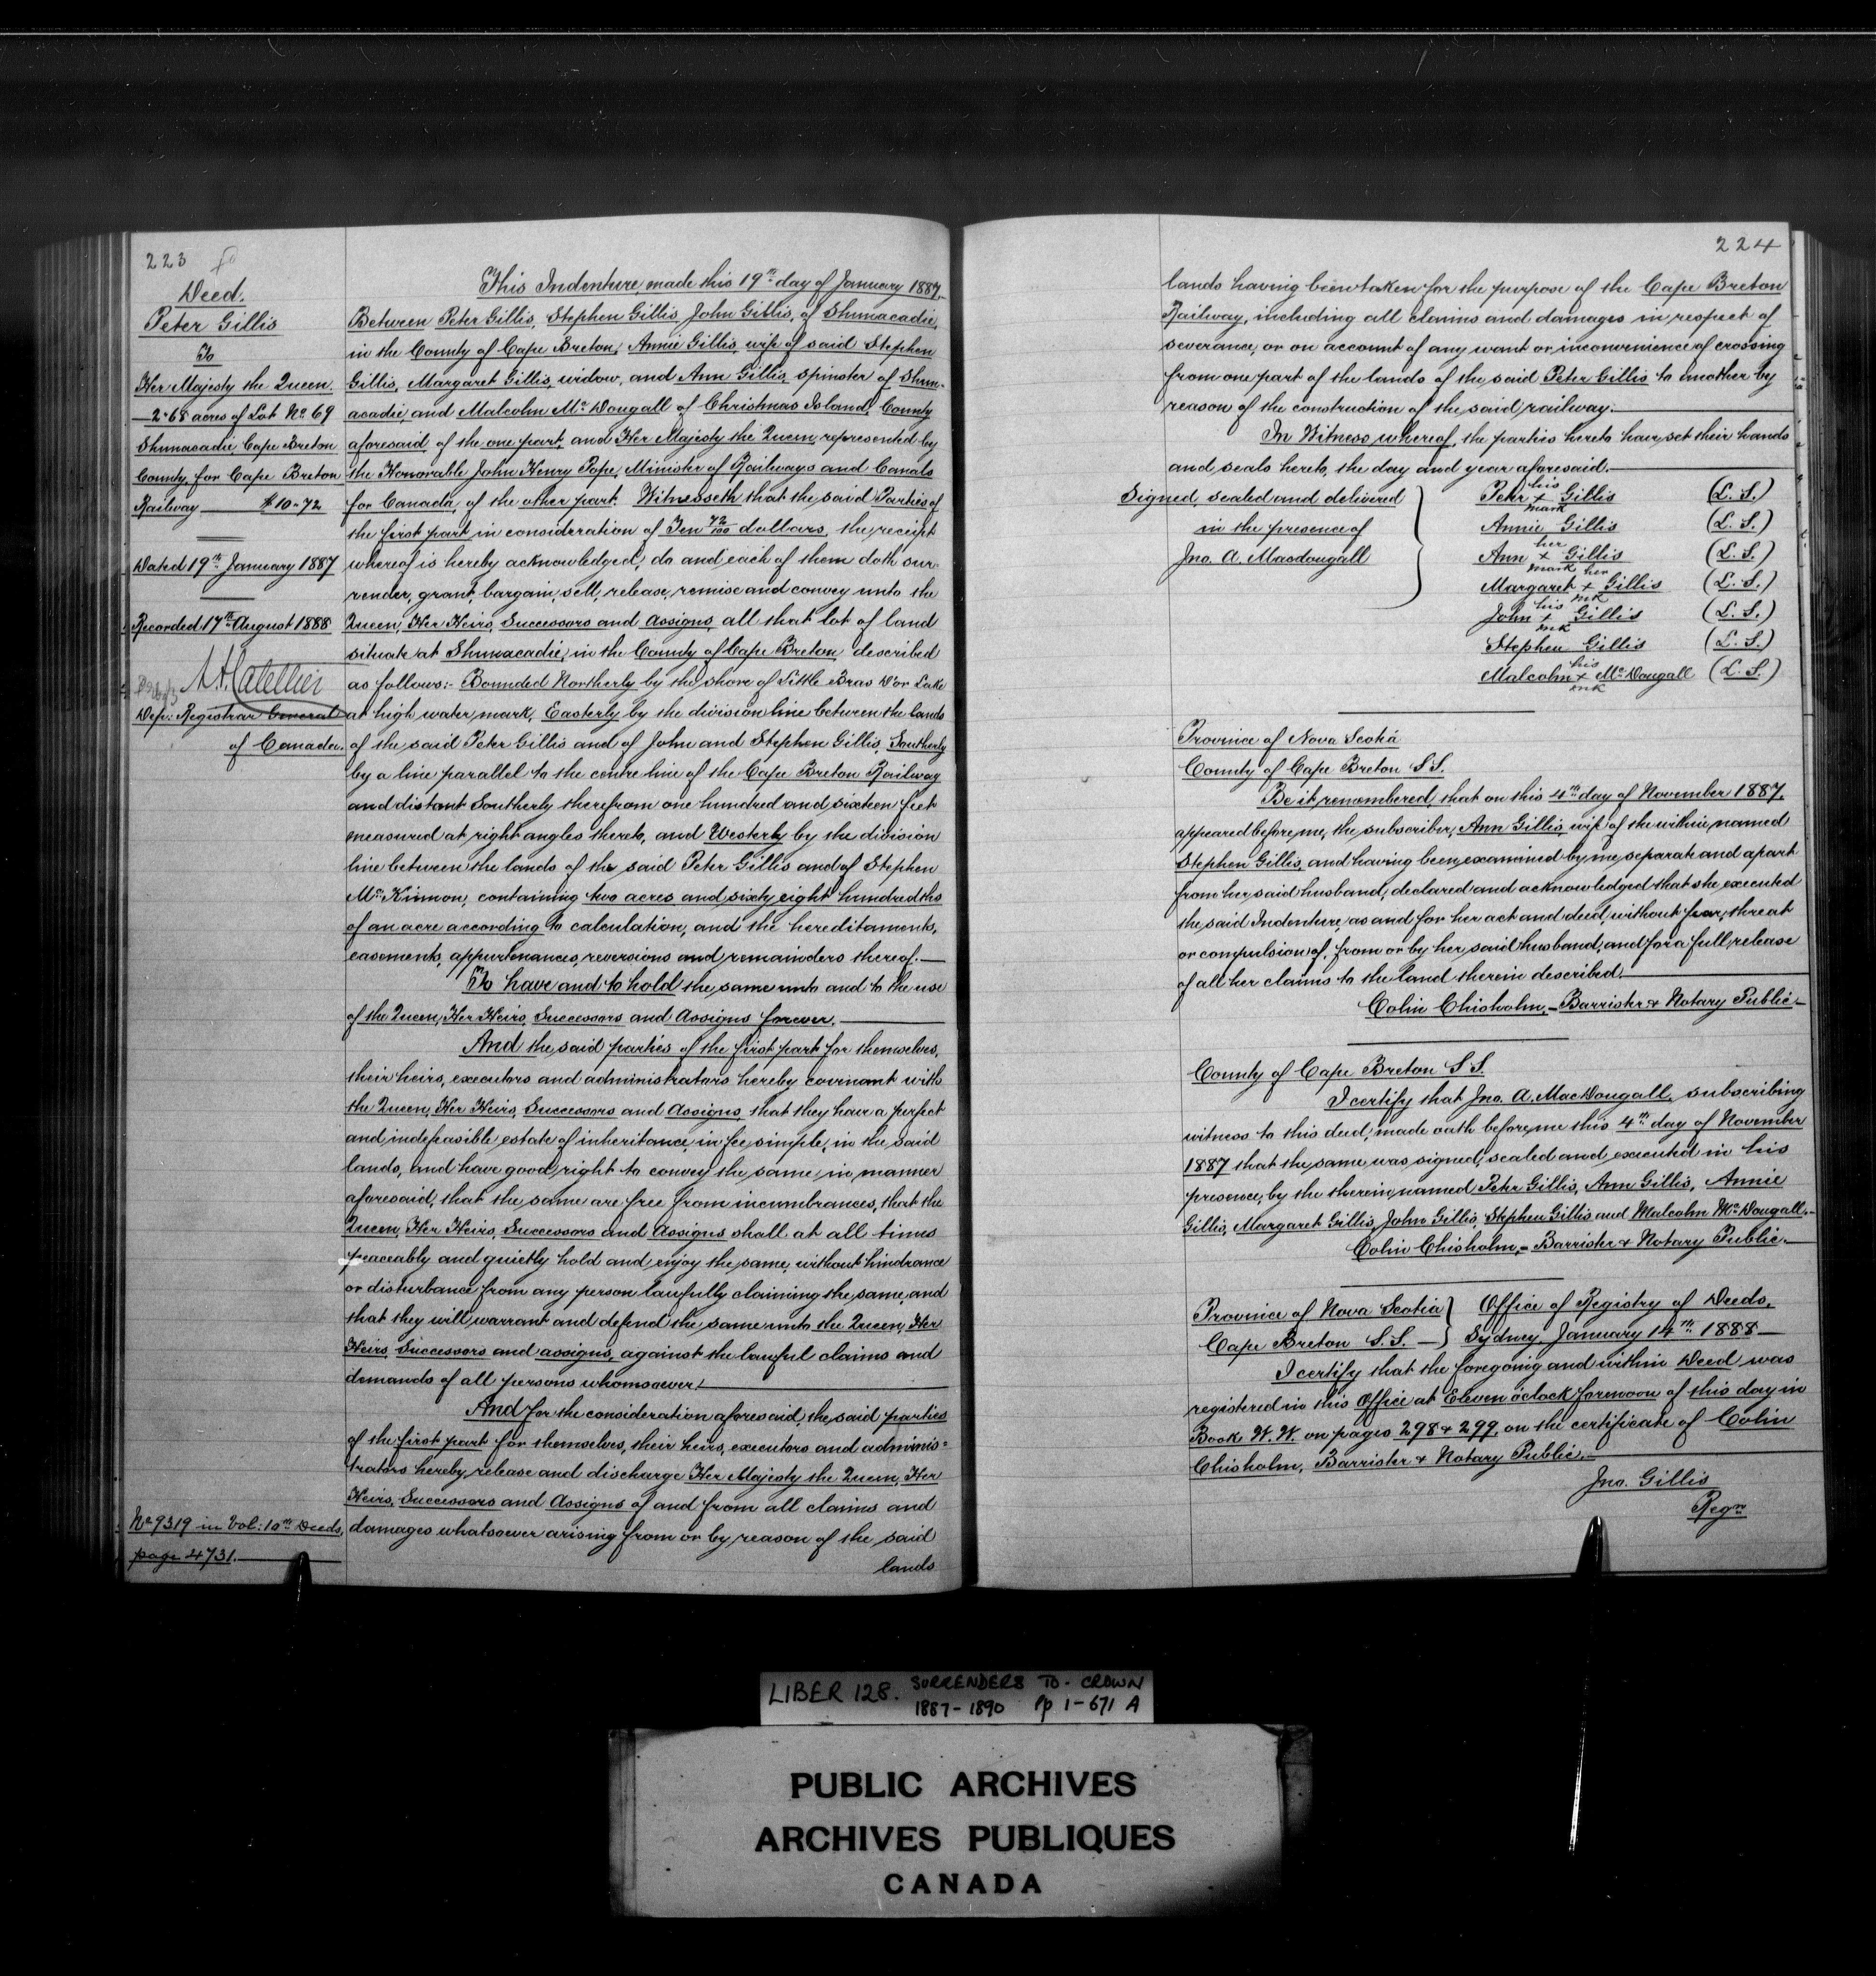 223
Deed.
Peter Gillis
To
Her Majesty the Queen.
2.68 acres of Lot No. 69
Shunacadie Cape Breton
County for Cape Breton
Railway — $10.72
Dated 19th January 1887
Recorded 17th August 1888
Dep: Registrar General
of Canada.
No 9319 in Vol: 10th Deeds,
page 4731.
This Indenture, made this 19th day of January 1887,
Between Peter Gillis, Stephen Gillis, John Gillis, of Shunacadie,
in the County of Cape Breton, Annie Gillis, wife of said Stephen
Gillis, Margaret Gillis, widow, and Ann Gillis, spinster of Shun-
acadie, and Malcolm Mc Dougall of Christmas Island, County
aforesaid, of the one part, and Her Majesty the Queen, represented by
the Honorable John Henry Pope, Minister of Railways and Canals
for Canada, of the other part. Witnesseth that the said Parties of
the first part, in consideration of Ten 72/100 dollars, the receipt
whereof is hereby acknowledged, do and each of them doth sur-
render, grant, bargain, sell, release, remise and convey unto the
Queen, Her Heirs, Successors and Assigns, all that lot of land
situate at Shunacadie, in the County of Cape Breton, described
as follows:- Bounded Northerly by the shore of Little Bras D'or Lake
at high water mark, Easterly by the division line between the lands
of the said Peter Gillis and of John and Stephen Gillis, Southerly
by a line parallel to the centre line of the Cape Breton Railway
and distant Southerly therefrom one hundred and sixteen feet
measured at right angles thereto, and Westerly by the division
line between the lands of the said Peter Gillis and of Stephen
Mc Kinnon, containing two acres and sixty eight hundredths
of an acre according to calculation, and the hereditaments,
easements, appurtenances, reversions and remainders thereof.—
To have and to hold the same unto and to the use
of the Queen, Her Heirs, Successors and Assigns forever.—
And the said parties of the first part for themselves,
their heirs, executors and administrators hereby covenant with
the Queen, Her Heirs, Successors and Assigns, that they have a perfect
and indefeasible estate of inheritance, in fee simple, in the said
lands, and have good right to convey the same, in manner
aforesaid, that the same are free from incumbrances, that the
Queen, Her Heirs, Successors and Assigns shall at all times
peaceably and quietly hold and enjoy the same, without hindrance
or disturbance from any person lawfully claiming the same, and
that they will warrant and defend the same unto the Queen, Her
Heirs, Successors and assigns, against the lawful claims and
demands of all persons whomsoever.—
And for the consideration aforesaid, the said parties
of the first part for themselves, their heirs, executors and adminis=
trators hereby release and discharge Her Majesty the Queen, Her
Heirs, Successors and Assigns of and from all claims and
damages whatsoever arising from or by reason of the said
lands
224
lands having been taken for the purpose of the Cape Breton
Railway, including all claims and damages in respect of
severance, or on account of any want or inconvenience of crossing
from one part of the lands of the said Peter Gillis to another by
reason of the construction of the said railway.—
In Witness whereof, the parties hereto have set their hands
and seals hereto, the day and year aforesaid.—
Signed, sealed and delivered
in the presence of
Jno. A. Macdougall
his
Peter + Gillis (L. S.)
mark
Annie Gillis (L. S.)
her
Ann + Gillis (L. S.)
mark her
Margaret + Gillis (L. S.)
his mk
John + Gillis (L. S.)
mk
Stephen Gillis (L. S.)
his
Malcolm + Mc Dougall (L. S.)
mk
Province of Nova Scotia
County of Cape Breton S.S.
Be it remembered, that on this 4th day of November 1887,
appeared before me, the subscriber, Ann Gillis, wife of the within named
Stephen Gillis, and having been examined by me, separate and apart
from her said husband, declared and acknowledged that she executed
the said Indenture, as and for her act and deed, without fear, threat
or compulsion of, from or by her said husband, and for a full release
of all her claims to the land therein described.—
Colin Chisholm,- Barrister & Notary Public-
County of Cape Breton S.S.
I certify that Jno. A. MacDougall, subscribing
witness to this deed, made oath before me this 4th day of November
1887 that the same was signed, sealed and executed in his
presence, by the therein named Peter Gillis, Ann Gillis, Annie
Gillis, Margaret Gillis, John Gillis, Stephen Gillis and Malcolm Mc Dougall.-
Colin Chisholm,- Barrister & Notary Public.—
Province of Nova Scotia } Office of Registry of Deeds,
Cape Breton S.S. — } Sydney, January 14th 1888—
I certify that the foregoing and within Deed was
registered in this Office at Eleven o'clock forenoon of this day in
Book W. W. on pages 298 & 299, on the certificate of Colin
Chisholm, Barrister & Notary Public.—
Jno. Gillis
Regr
LIBER 128. SURRENDERS TO. CROWN
1887-1890 Pp 1-671 A
PUBLIC ARCHIVES
ARCHIVES PUBLIQUES
CANADA